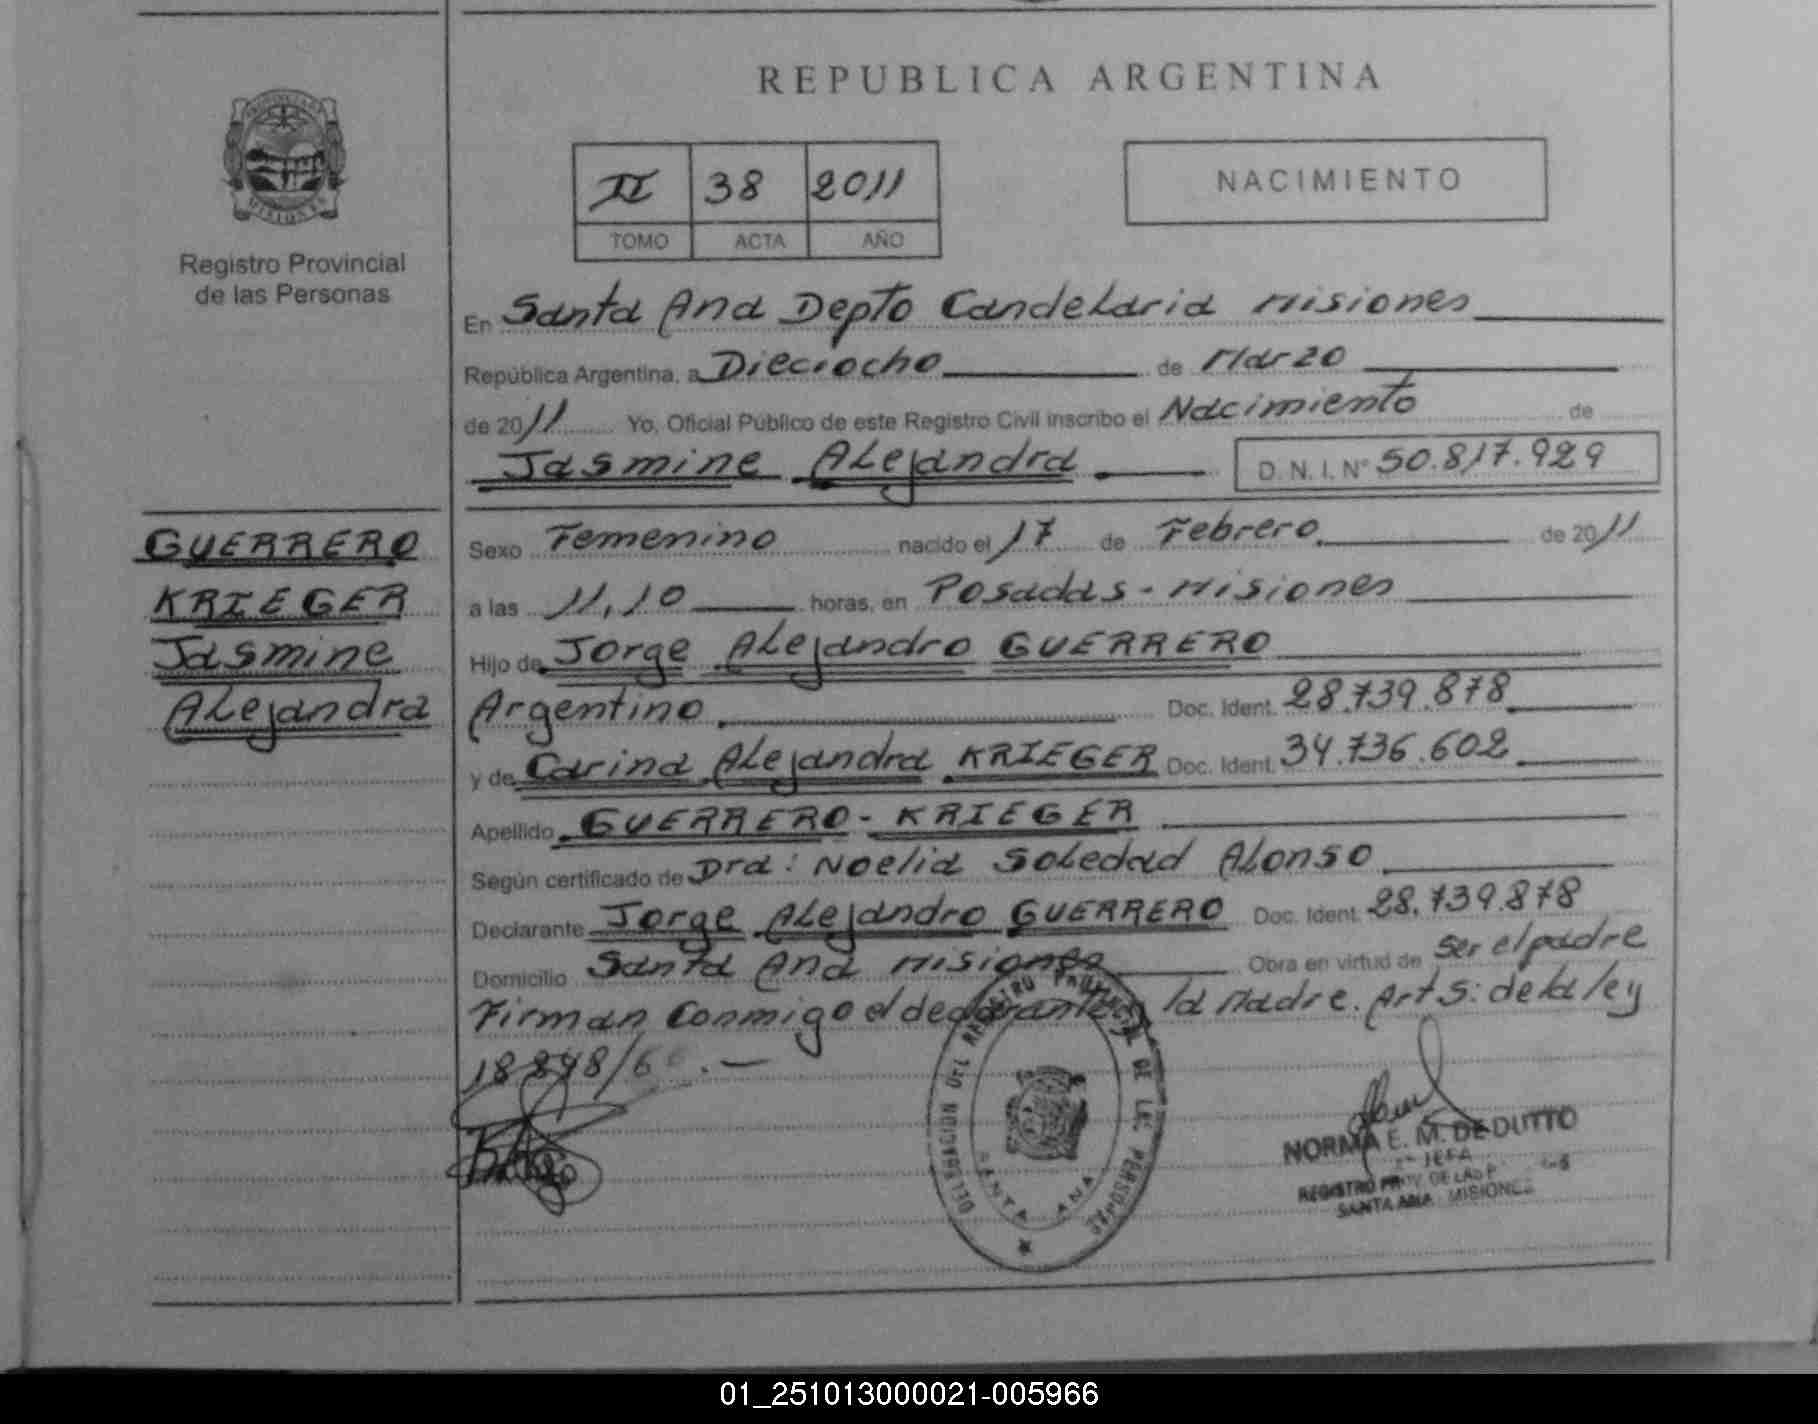 REPUBLICA ARGENTINA
PROVINCIA DE
MISIONES
Registro Provincial
de las Personas
II 38 2011
TOMO ACTA AÑO
NACIMIENTO
En Santa Ana Depto Candelaria Misiones
República Argentina, a Dieciocho de Marzo
de 2011 Yo, Oficial Público de este Registro Civil inscribo el Nacimiento de
Jasmine Alejandra D. N. I. N° 50.817.929
GUERRERO
KRIEGER
Jasmine
Alejandra
Sexo Femenino nacido el 17 de Febrero de 2011
a las 11,10 horas, en Posadas - Misiones
Hijo de Jorge Alejandro GUERRERO
Argentino Doc. Ident. 28.739.878
y de Carina Alejandra KRIEGER Doc. Ident. 34.736.602
Apellido GUERRERO - KRIEGER
Según certificado de Dra: Noelia Soledad Alonso
Declarante Jorge Alejandro GUERRERO Doc. Ident. 28.739.878
Domicilio Santa Ana Misiones Obra en virtud de ser el padre
Firman Conmigo el declarante y la Madre. Art 5: de la ley
18248/6
DELEGACION REGISTRO PROVINCIAL DE LAS PERSONAS
SANTA ANA
NORMA E. M. DE DUTTO
JEFA
REGISTRO PROV. DE LAS P
SANTA ANA MISIONES
01_251013000021-005966